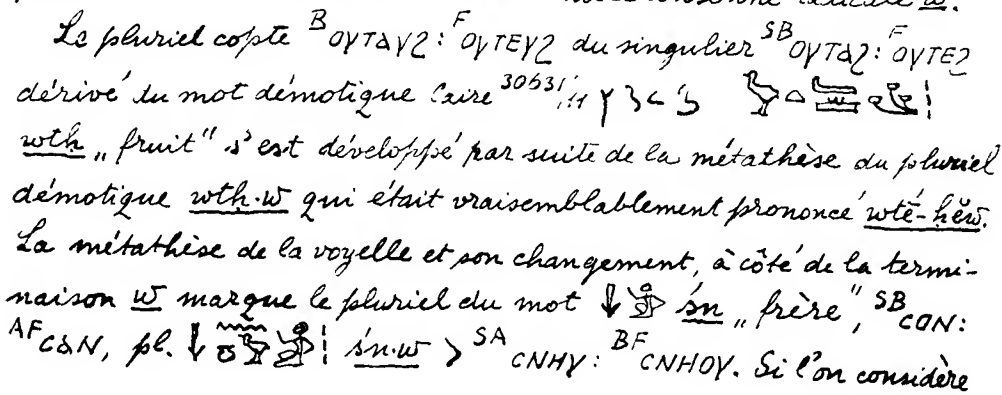 Le pluriel copte ᴮ ⲟⲩⲧⲁⲩϩ : ꟳ ⲟⲩⲧⲉⲩϩ du singulier ˢᴮ ⲟⲩⲧⲁϩ : ꟳ ⲟⲩⲧⲉϩ
dérivé du mot démotique Caire ³⁰⁶³¹,₁₁
wtḥ „ fruit" s'est développé par suite de la métathèse du pluriel
démotique wtḥ·w qui était vraisemblablement prononcé wtĕ-ḥĕw.
La métathèse de la voyelle et son changement, à côté de la termi-
naison w marque le pluriel du mot śn „ frère", ˢᴮ ⲥⲟⲛ :
ᴬꟳ ⲥⲁⲛ, pl. śn·w > ˢᴬ ⲥⲛⲏⲩ : ᴮꟳ ⲥⲛⲏⲟⲩ. Si l'on considère